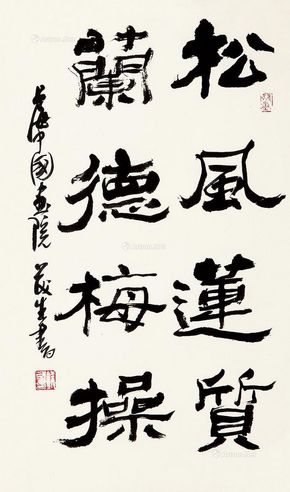 松風蓮質
蘭德梅操
上海中國畫院
茂生書